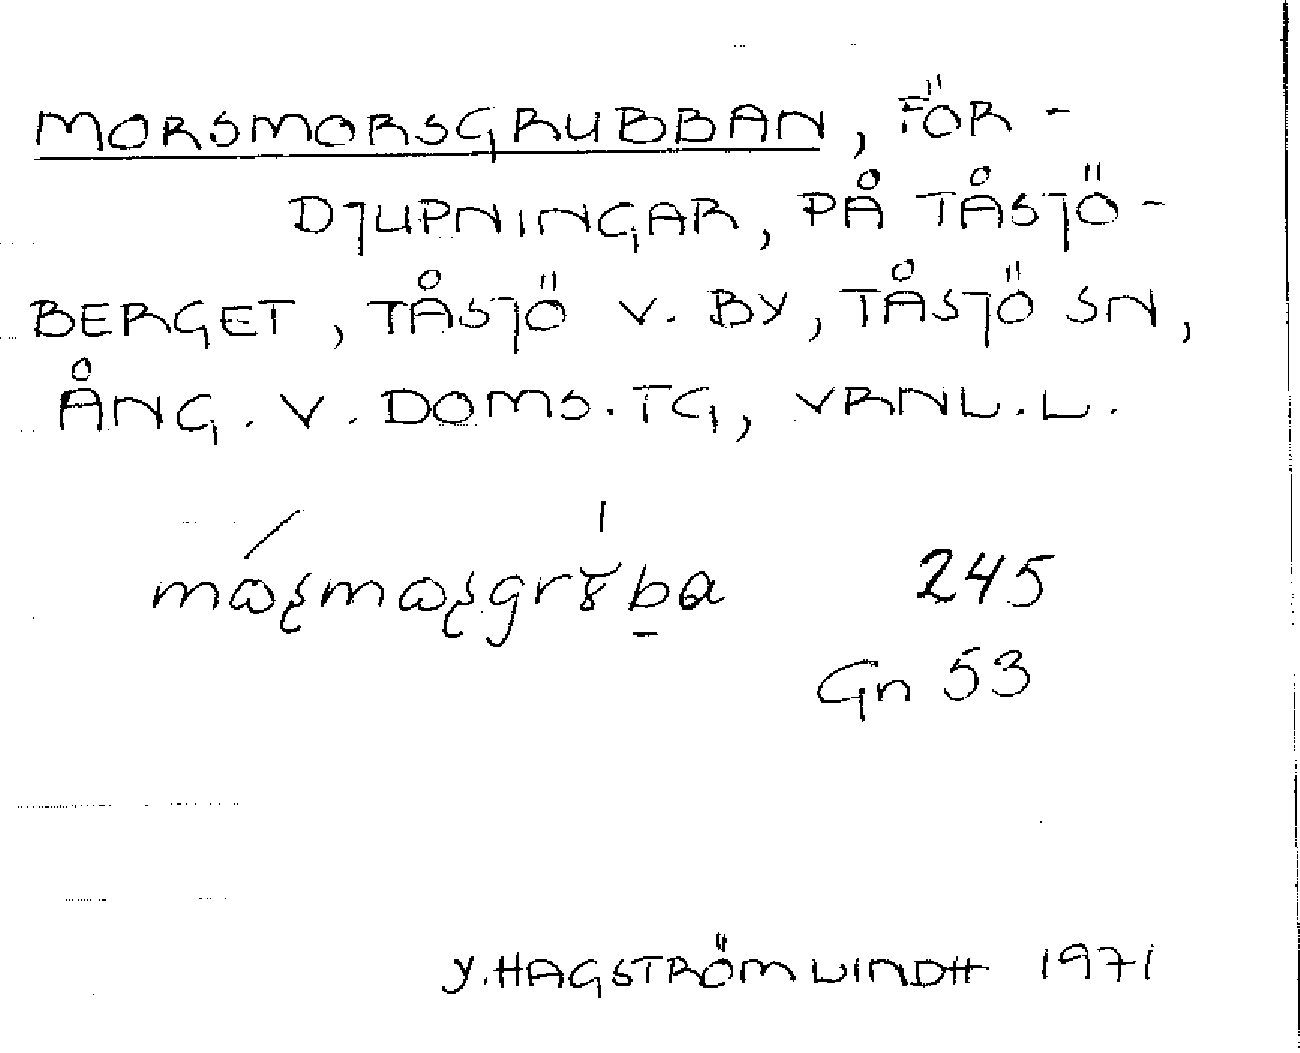 MORSMORSGRUBBAN, FÖR-
DJUPNINGAR, PÅ TÅSJÖ-
BERGET, TÅSJÖ V. BY, TÅSJÖ SN,
ÅNG. V. DOMS. TG, VRNL. L.
245
Gn 53
Y. HAGSTRÖM LINDH 1971